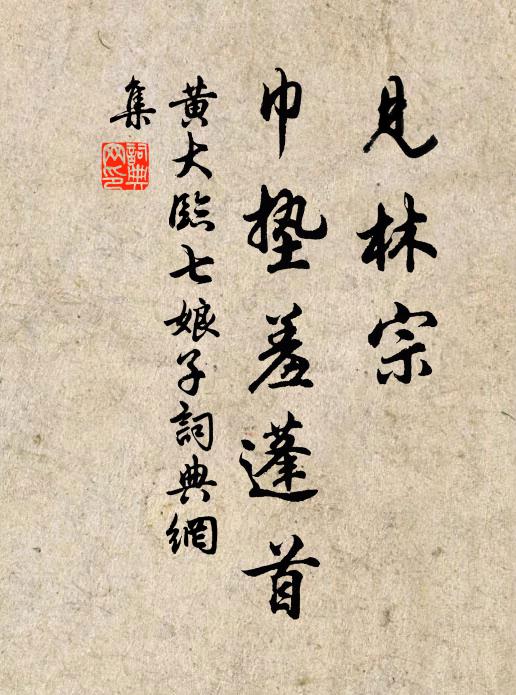 見林宗
巾墊羞蓬首
黃大臨七娘子詞典網
集
詞典網印